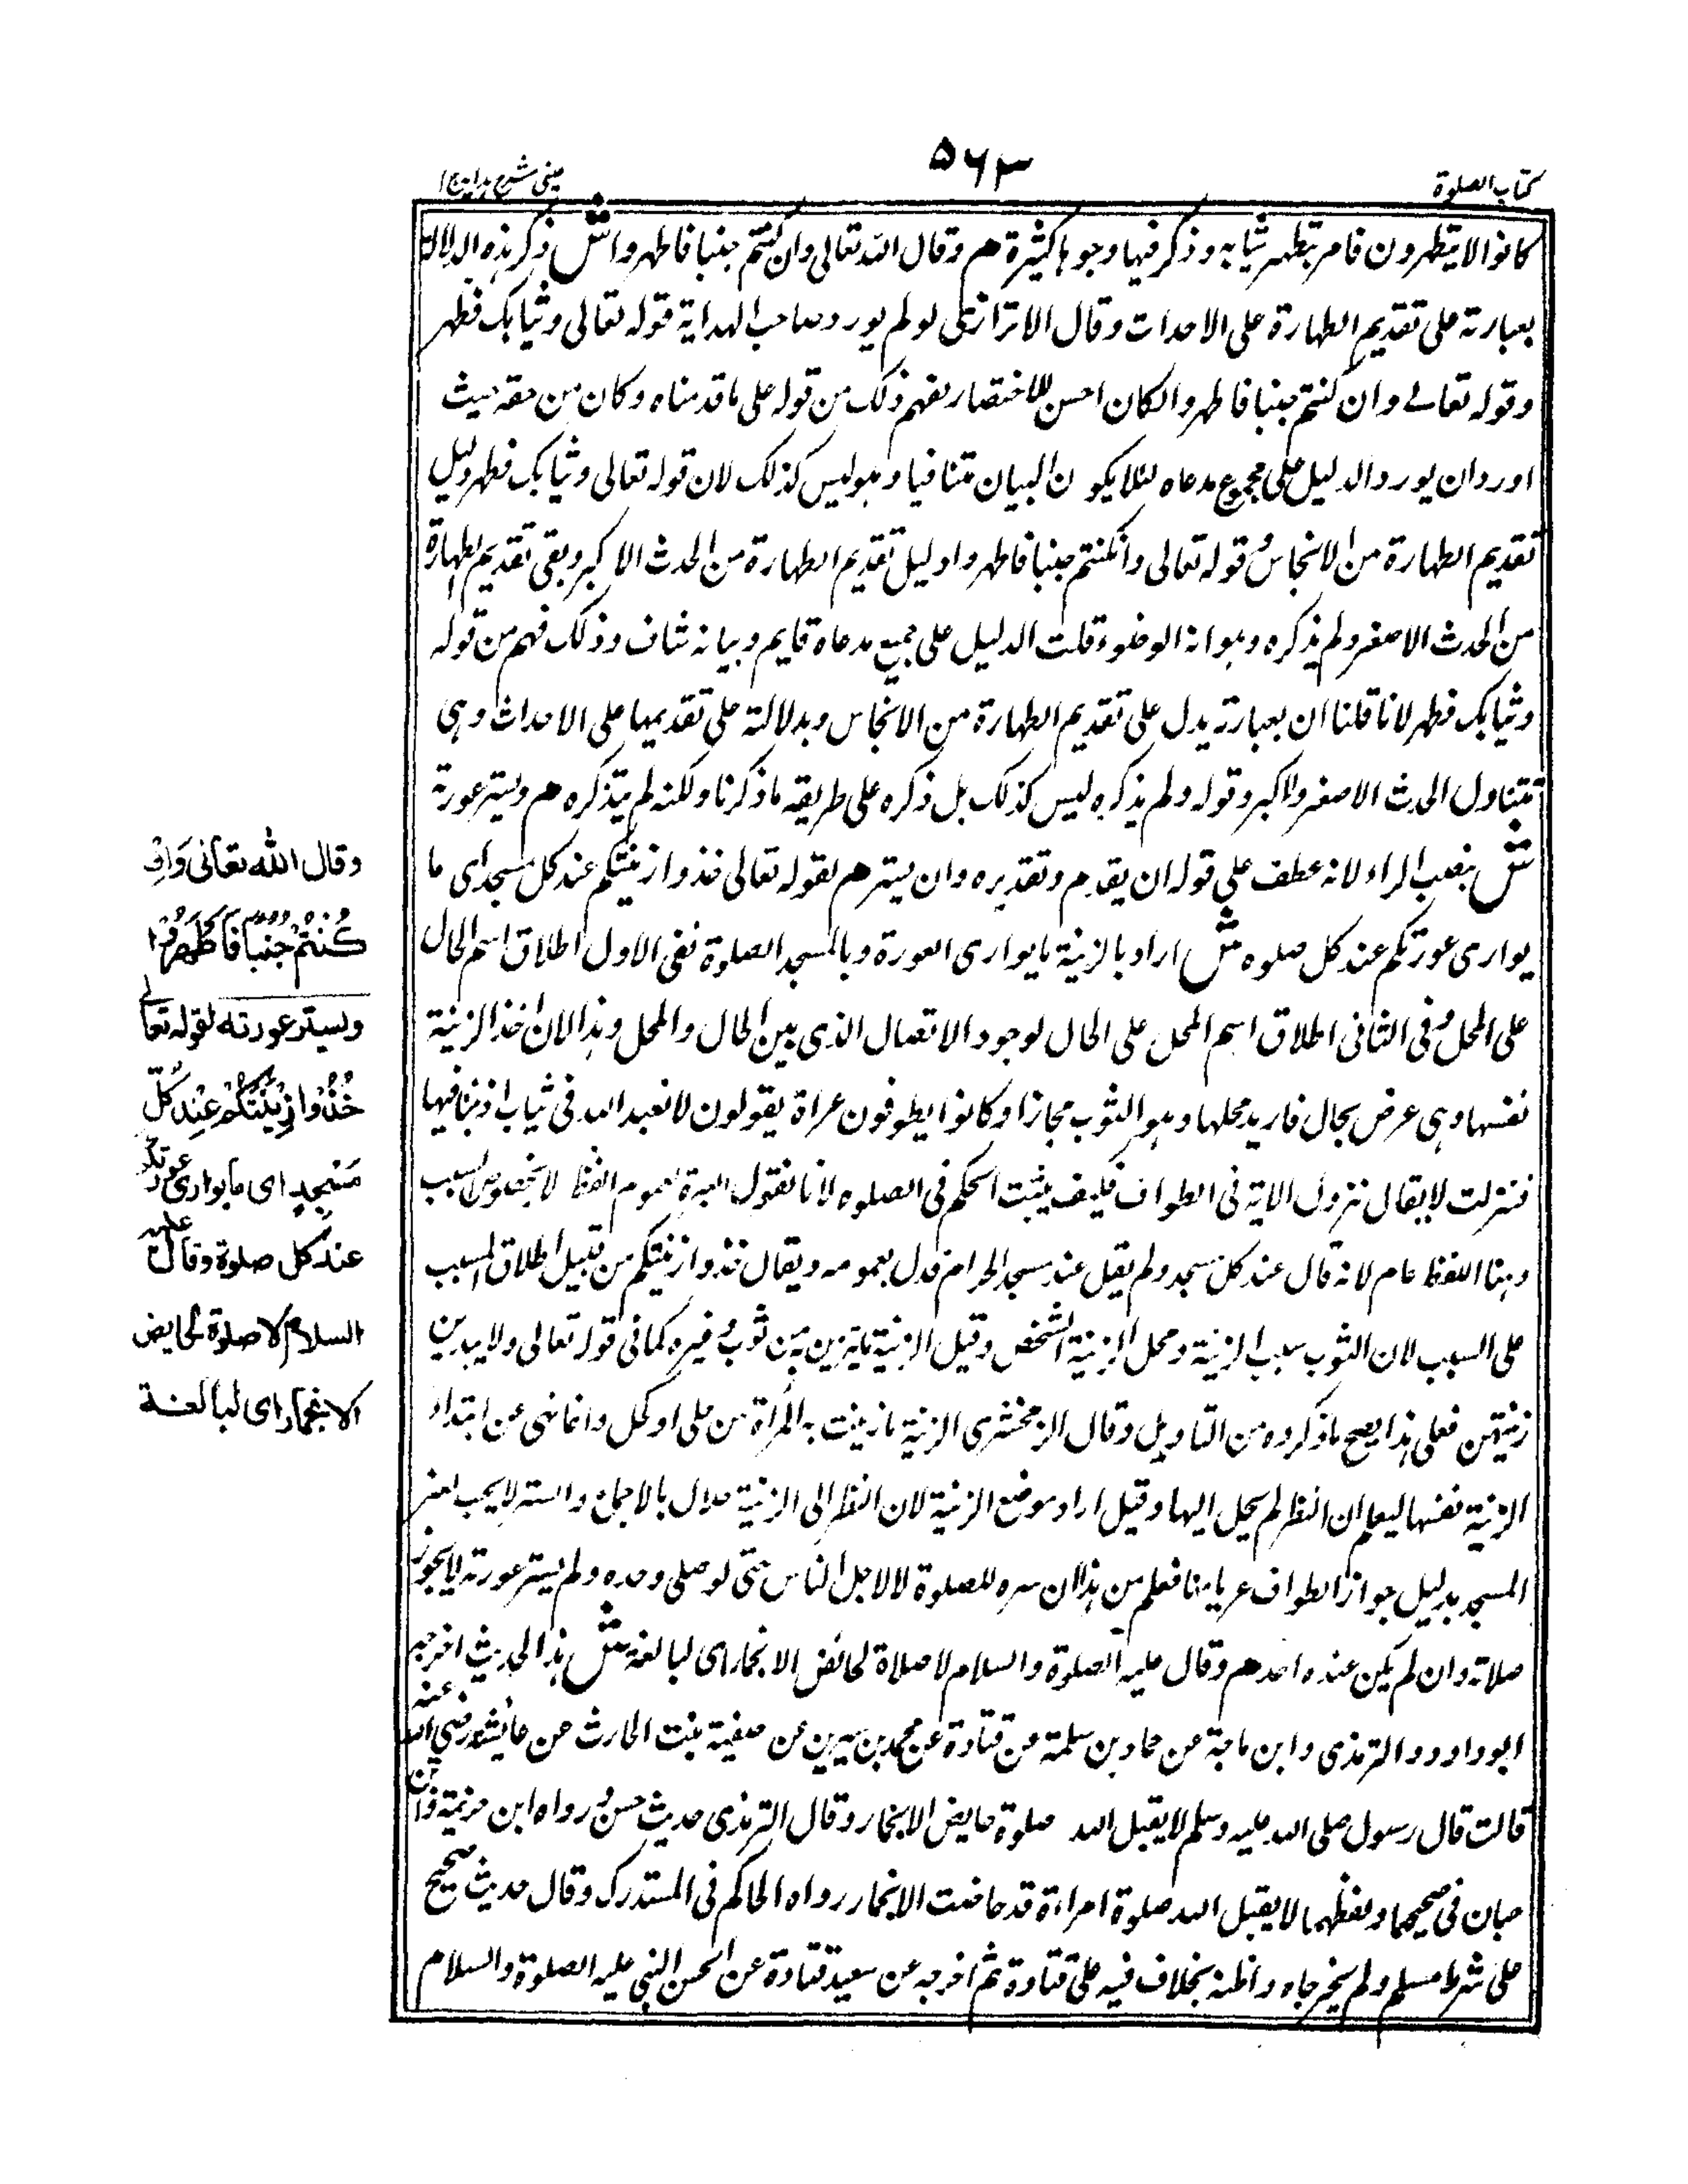 كتاب الصلوة
۵۶۳
عينى شرح هدايه ج ا
كانوا لا يتطهرون فامر بتطهير ثيابه وذكر فيها وجوها كثيرة هم وقال الله تعالى وان كنتم جنبا فاطهروا ش ذكر هذه الدلالة
بعبارته على تقديم الطهارة على الاحداث وقال الاترازى لو لم يورد صاحب الهداية قوله تعالى وثيابك فطهر
وقوله تعالى وان كنتم جنبا فاطهروا لكان احسن للاختصار لفهم ذلك من قوله على ما قدمناه وكان من حقه حيث
اورد ان يورد الدليل على مجموع مدعاه لئلا يكون البيان متنافيا وهو ليس كذلك لان قوله تعالى وثيابك فطهر دليل
تقديم الطهارة من الانجاس وقوله تعالى وانكنتم جنبا فاطهروا دليل تقديم الطهارة من الحدث الاكبر وبقى تقديم الطهارة
من الحدث الاصغر ولم يذكره وهو انه الوضوء قلت الدليل على جميع مدعاه قايم وبيانه شاف وذلك فهم من قوله
وثيابك فطهر لانا قلنا ان بعبارته يدل على تقديم الطهارة من الانجاس وبدلالته على تقديمها على الاحداث وهى
تتناول الحدث الاصغر والاكبر وقوله ولم يذكره ليس كذلك بل ذكره على طريقة ما ذكرنا ولكنه لم يتذكره هم ويستر عورته
ش بنصب الراء لانه عطف على قوله ان يقدم وتقديره وان يستر هم لقوله تعالى خذوا زينتكم عند كل مسجد اى ما
يوارى عورتكم عند كل صلوه ش اراد بالزينة ما يوارى العورة وبالمسجد الصلوة ففى الاول اطلاق اسم الحال
على المحل وفى الثانى اطلاق اسم المحل على الحال لوجود الاتصال الذى بين الحال والمحل وهذا لان اخذ الزينة
نفسها وهى عرض محال فاريد محلها وهو الثوب مجازا وكانوا يطوفون عراة يقولون لا نعبد الله فى ثياب اذنبنا فيها
فنزلت لا يقال نزول الاية فى الطواف فكيف يثبت الحكم فى الصلوه لانا نقول العبرة لعموم اللفظ لا لخصوص السبب
وهنا اللفظ عام لانه قال عند كل مسجد ولم يقل عند مسجد الحرام فدل بعمومه ويقال خذوا زينتكم من قبيل اطلاق المسبب
على السبب لان الثوب سبب الزينة ومحل الزينة الشخص وقيل الزينة ما يتزين به من ثوب وغيره كما فى قوله تعالى ولا يبدين
زينتهن فعلى هذا يصح ما ذكروه من التاويل وقال الزمخشرى الزينة ما زينت به المرأة من حلى او كحل وانما نهى عن ابتداء
الزينة نفسها ليعلم ان النظر لم يحل اليها وقيل اراد موضع الزينة لان النظر الى الزينة حلال بالاجماع والستر لا يجب لغير
المسجد بدليل جواز الطواف عريانا فعلم من هذا ان ستره للصلوة لا لاجل الناس حتى لو صلى وحده ولم يستر عورته لا يجوز
صلاته وان لم يكن عنده احد هم وقال عليه الصلوة والسلام لا صلاة لحائض الا بخمار اى لبالغة ش هذا الحديث اخرجه
ابو داود والترمذى وابن ماجة عن حماد بن سلمة عن قتادة عن محمد بن سيرين عن صفية بنت الحارث عن عايشة رضى الله عنه
قالت قال رسول صلى الله عليه وسلم لا يقبل الله صلوة حايض الا بخمار وقال الترمذى حديث حسن ورواه ابن خزيمة وابن
حبان فى صحيحهما ولفظهما لا يقبل الله صلوة امراءة قد حاضت الا بخمار رواه الحاكم فى المستدرك وقال حديث صحيح
على شرط مسلم ولم يخرجاه واظنه بخلاف فيه على قتادة ثم اخرجه عن سعيد قتادة عن الحسن النبى عليه الصلوة والسلام
وقال الله تعالى وَاِنْ
كُنْتُمْ جُنُبًا فَاطَّهَّرُوْا
ويستر عورته لقوله تعالى
خُذُوْا زِيْنَتَكُمْ عِنْدَ كُلِّ
مَسْجِدٍ اى ما يوارى عورتكم
عند كل صلوة وقال عليه
السلام لا صلوة لحايض
الا بخمار اى لبالغة